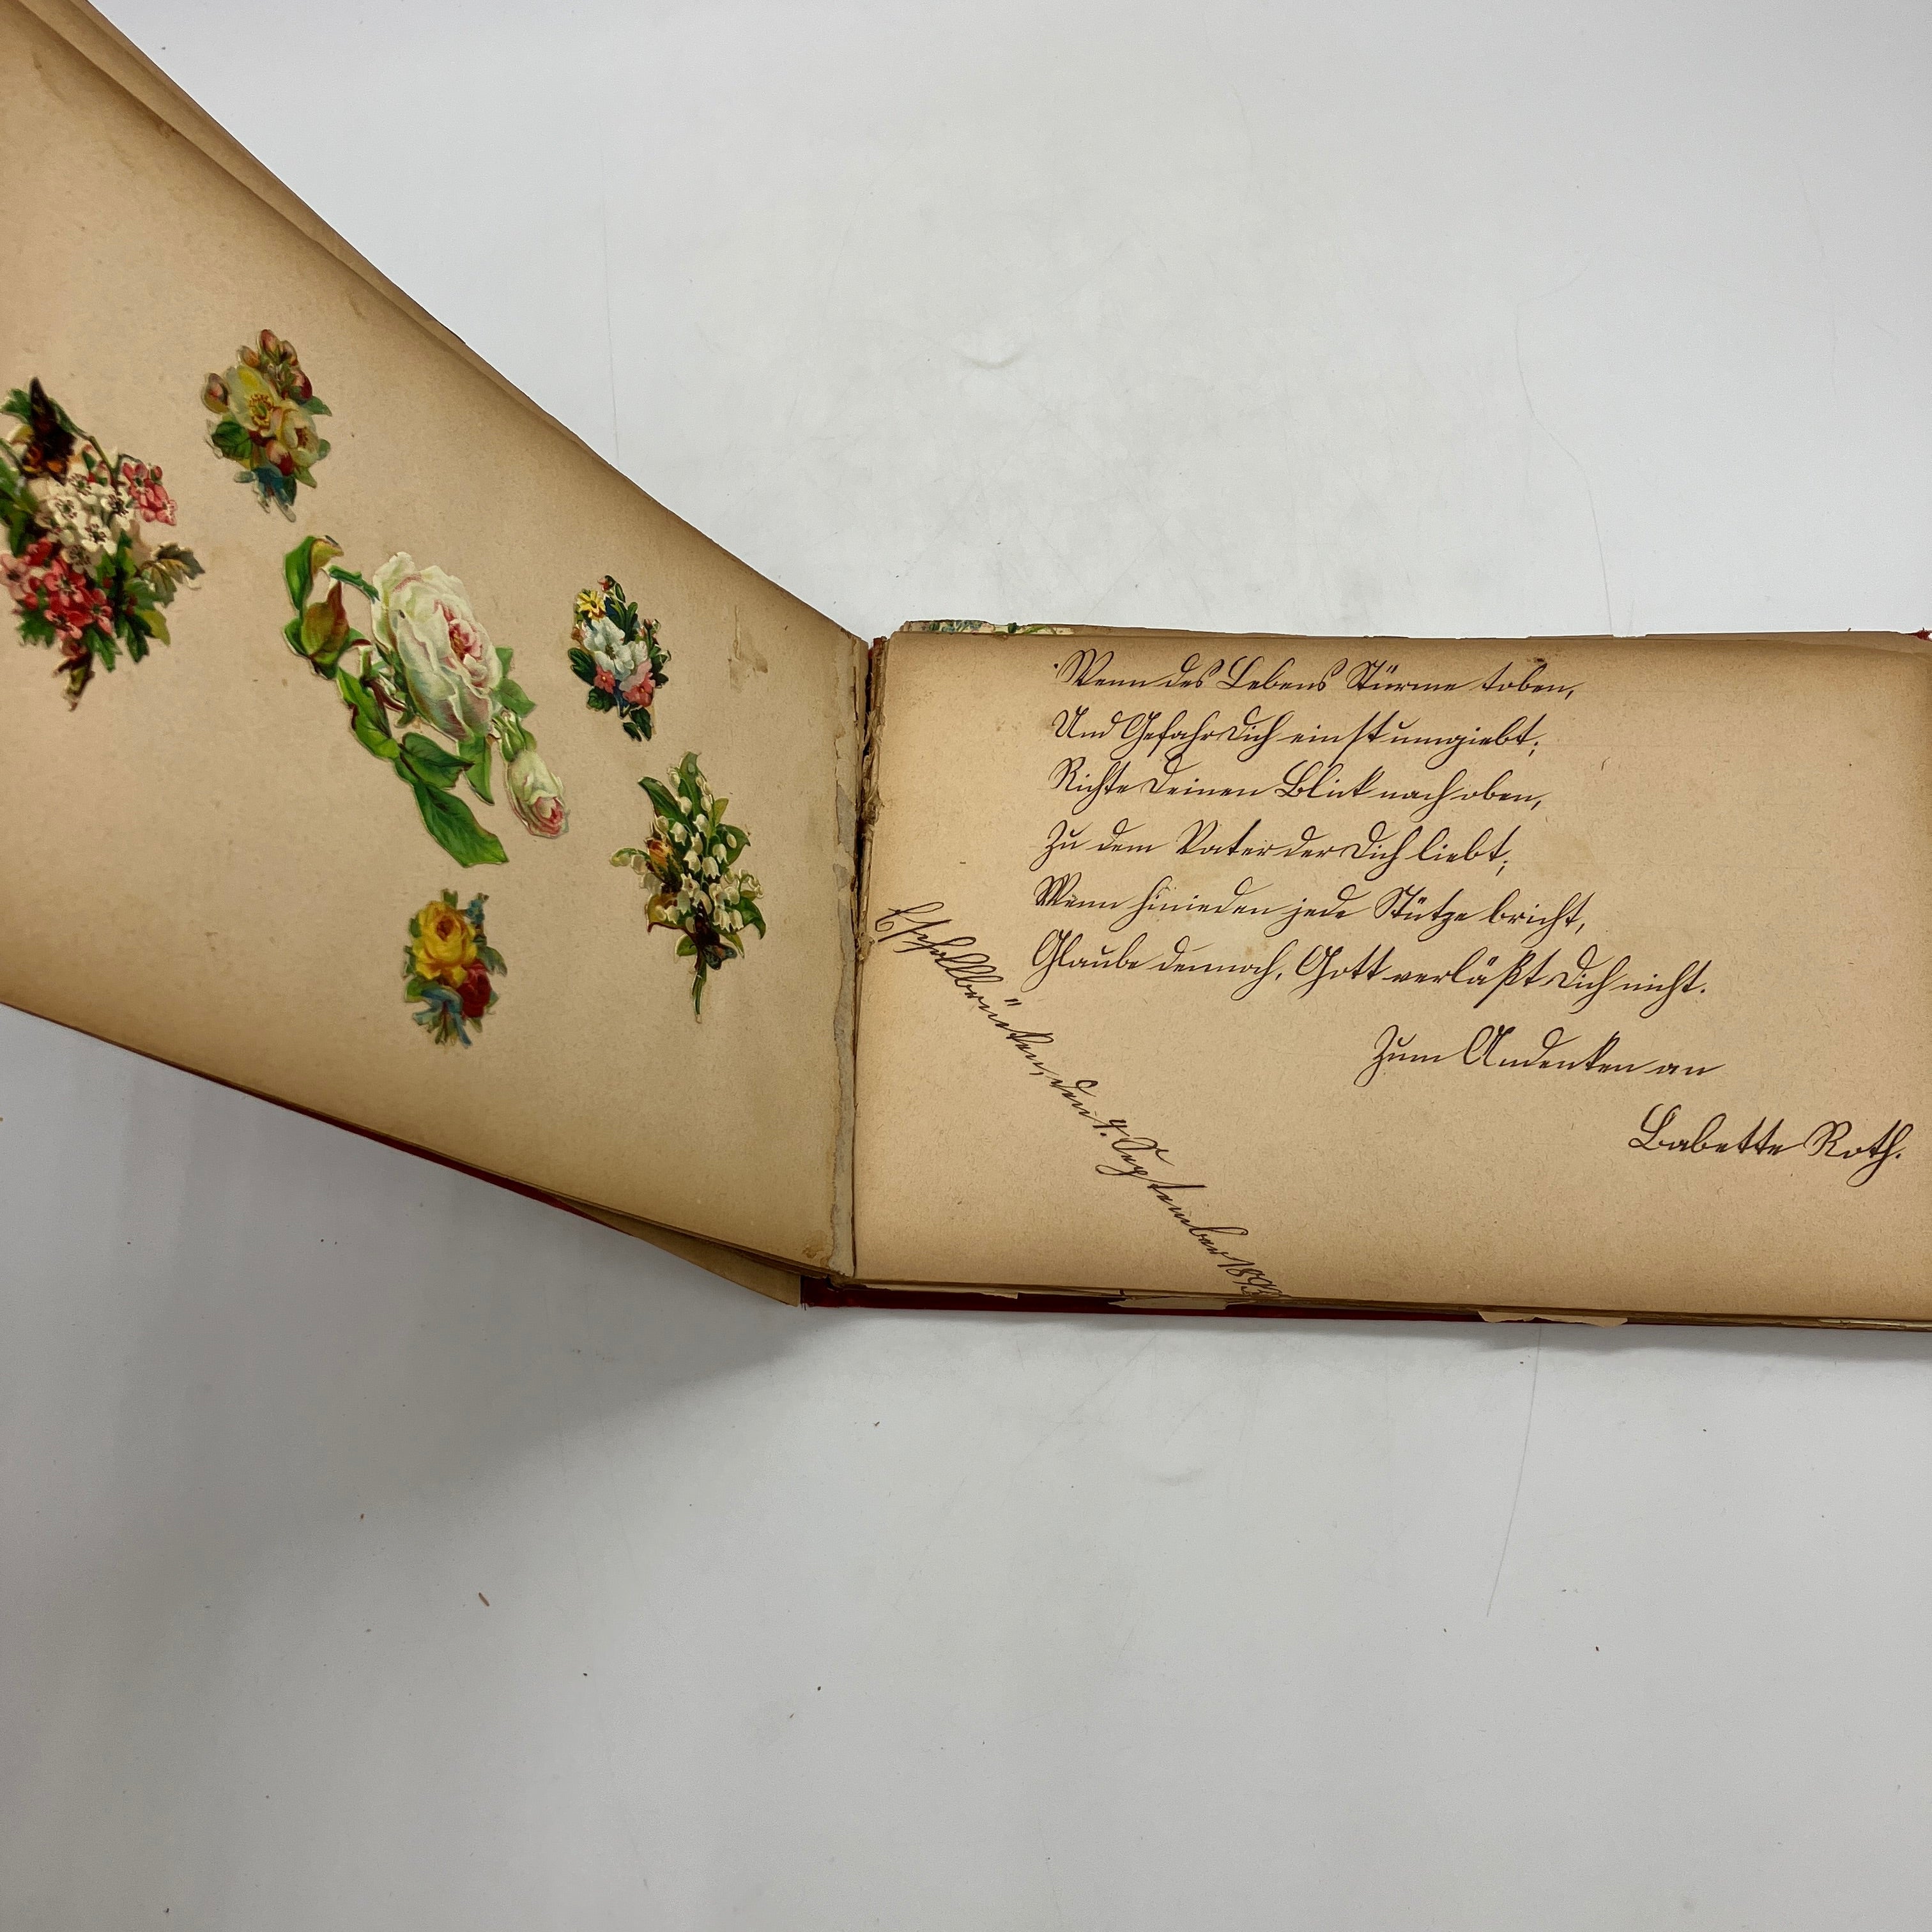 Wenn des Lebens Stürme toben,
Und Gefahr Dich einst umgiebt;
Richte Deinen Blick nach oben,
Zu dem Vater der Dich liebt;
Wenn hinieden jede Stütze bricht,
Glaube dennoch, Gott verläßt Dich nicht.
Zum Andenken an
Babette Roth.
den September